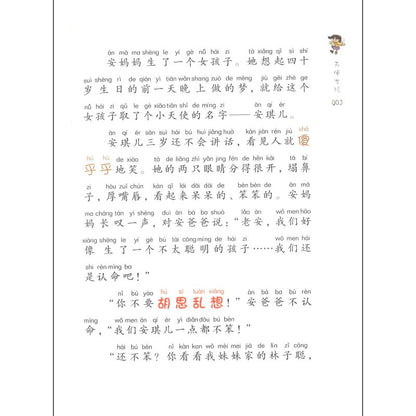 ān mā ma shēng le yí gè nǚ hái zi tā xiǎng qǐ sì shí
安妈妈生了一个女孩子。她想起四十
suì shēng rì de qián yì tiān wǎn shang zuò de mèng jiù gěi zhè ge
岁生日的前一天晚上做的梦，就给这个
nǚ hái zi qǔ le gè xiǎo tiān shǐ de míng zi ān qí ér
女孩子取了个小天使的名字——安琪儿。
ān qí ér sān suì hái bú huì jiǎng huà kàn jiàn rén jiù shǎ
安琪儿三岁还不会讲话，看见人就傻
hū hū de xiào tā de liǎng zhī yǎn jing fēn de hěn kāi tā bí
乎乎地笑。她的两只眼睛分得很开，塌鼻
zi hòu zuǐ chún kàn qǐ lái dāi dāi de bèn bèn de ān mā
子，厚嘴唇，看起来呆呆的、笨笨的。安妈
ma cháng tàn yì shēng duì ān bà ba shuō lǎo ān wǒ men hǎo
妈长叹一声，对安爸爸说：“老安，我们好
xiàng shēng le yí gè bú tài cōng míng de hái zi wǒ men hái
像生了一个不太聪明的孩子……我们还
shì rèn mìng ba
是认命吧！”
nǐ bú yào hú sī luàn xiǎng ān bà ba bú rèn
“你不要胡思乱想！”安爸爸不认
mìng wǒ men ān qí ér yì diǎn dōu bú bèn
命，“我们安琪儿一点都不笨！”
hái bú bèn nǐ kàn kan wǒ mèi mei jiā de lín zǐ cōng
“还不笨？你看看我妹妹家的林子聪，
003